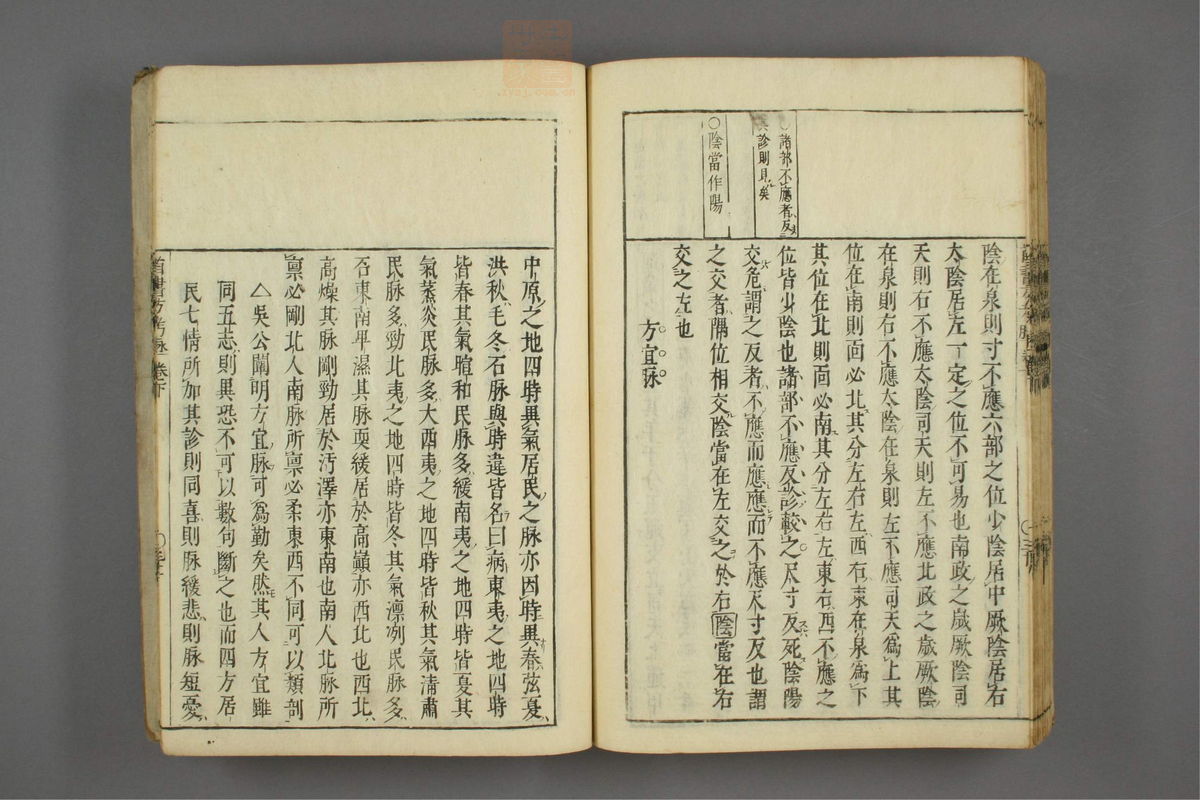 諸部不應者反
其診則見矣
○陰當作陽
陰在泉則寸不應六部之位少陰居中厥陰居右
太陰居左一定之位不可易也南政之歲厥陰司
天則右不應太陰司天則左不應北政之歲厥陰
在泉則右不應太陰在泉則左不應司天爲上其
位在南則面必北其分左右左西右東在泉爲下
其位在北則面必南其分左右左東右西不應之
位皆少陰也諸部不應反診較之尺寸反死陰陽
交危謂之反者不應而應應而不應尺寸反也謂
之交者隔位相交陰當在左交之於右陰當在右
交之左也
方宜脉
中原之地四時異氣居民之脉亦因時異春弦夏
洪秋毛冬石脉與時違皆名曰病東夷之地四時
皆春其氣暄和民脉多緩南夷之地四時皆夏其
氣蒸炎民脉多大西夷之地四時皆秋其氣清肅
民脉多勁北夷之地四時皆冬其氣凛冽民脉多
石東南卑濕其脉耎緩居於高巔亦西北也西北
高燥其脉剛勁居於汚澤亦東南也南人北脉所
禀必剛北人南脉所禀必柔東西不同可以類剖
△吳公闡明方宜脉可爲勤矣然其人方宜雖
同五志則異恐不可以數句斷之也而四方居
民七情所加其診則同喜則脉緩悲則脉短憂